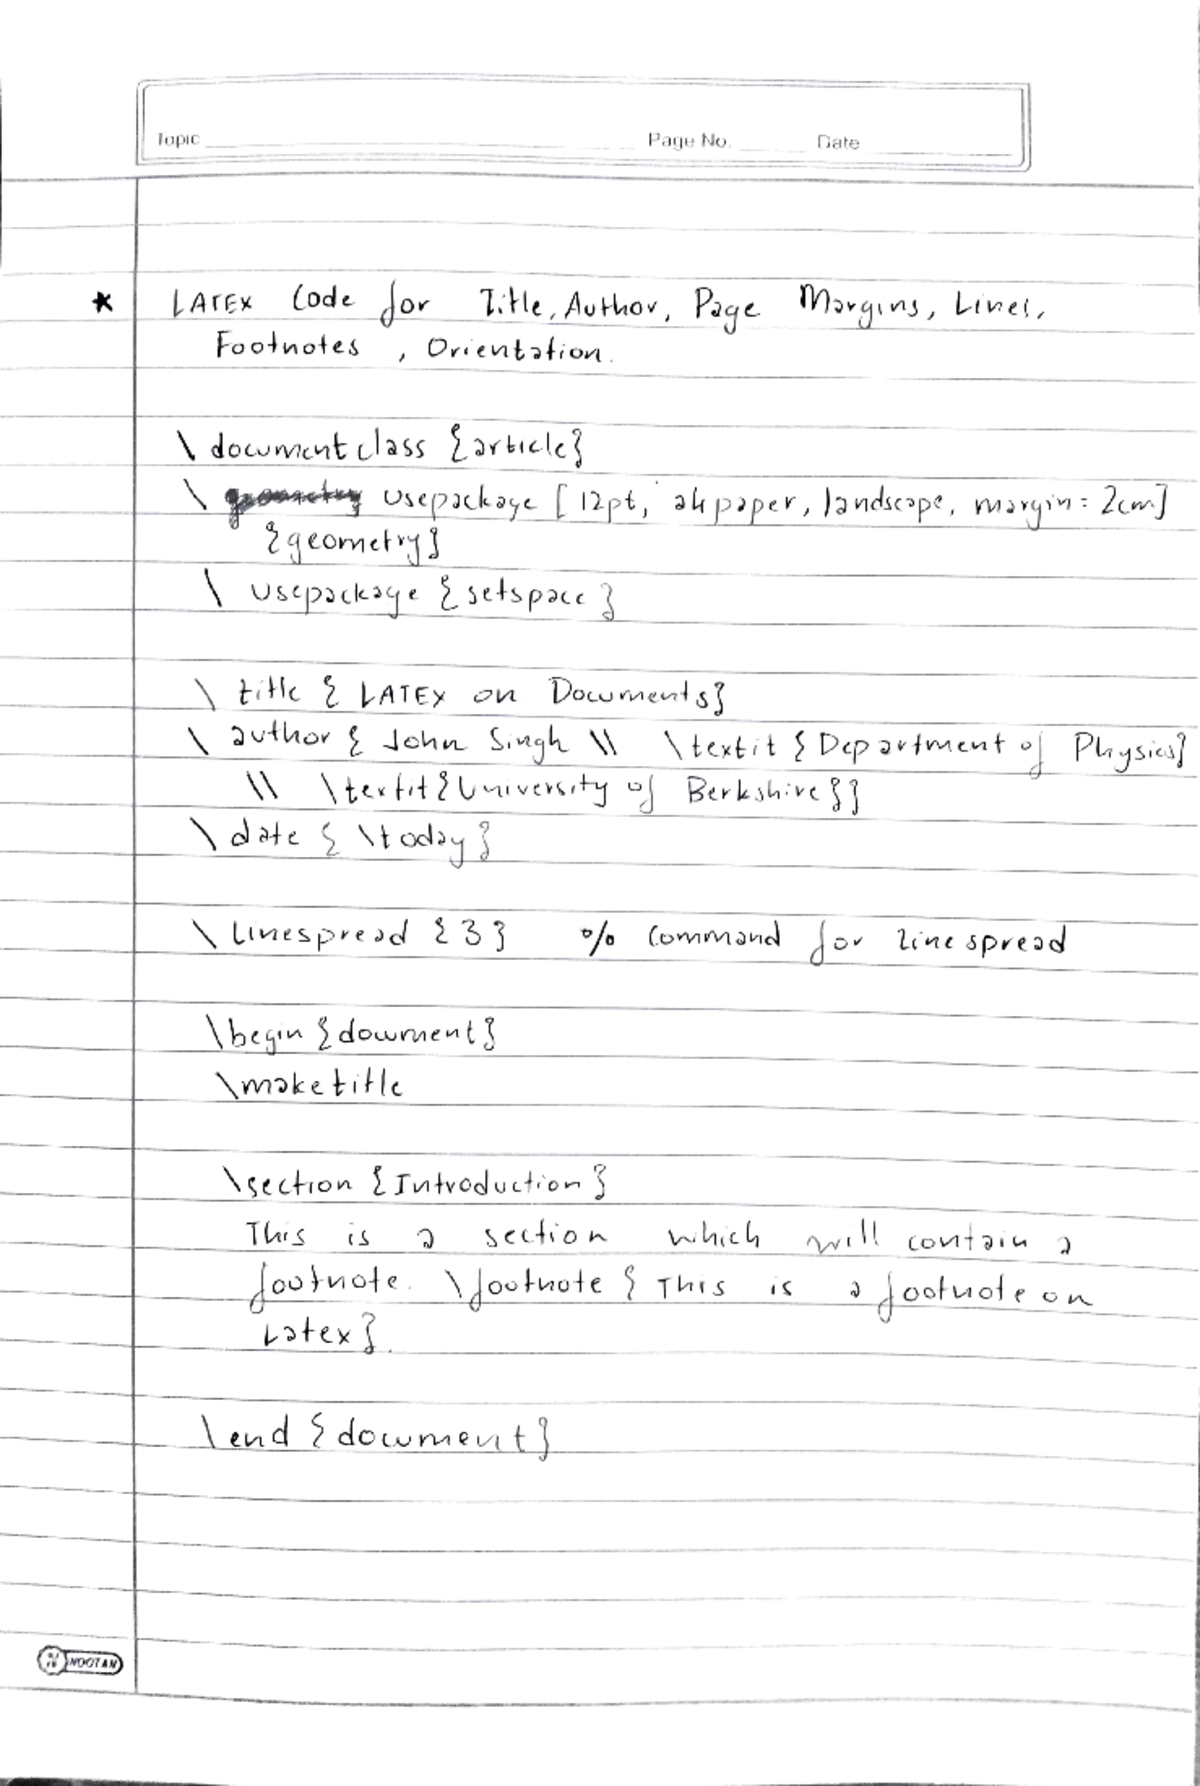 Topic Page No. Date
★ LATEX Code for Title, Author, Page Margins, Lines,
Footnotes , Orientation.
\ documentclass {article}
\ usepackage [12pt, a4paper, landscape, margin=2cm]
{geometry}
\ usepackage {setspace}
\ title { LATEX on Documents}
\ author { John Singh \\ \textit {Department of Physics}
\\ \textit{University of Berkshire}}
\ date { \today}
\ Linespread {3} % Command for linespread
\begin {document}
\maketitle
\section {Introduction}
This is a section which will contain a
footnote. \footnote { This is a footnote on
Latex}.
\end {document}
NOOTAN